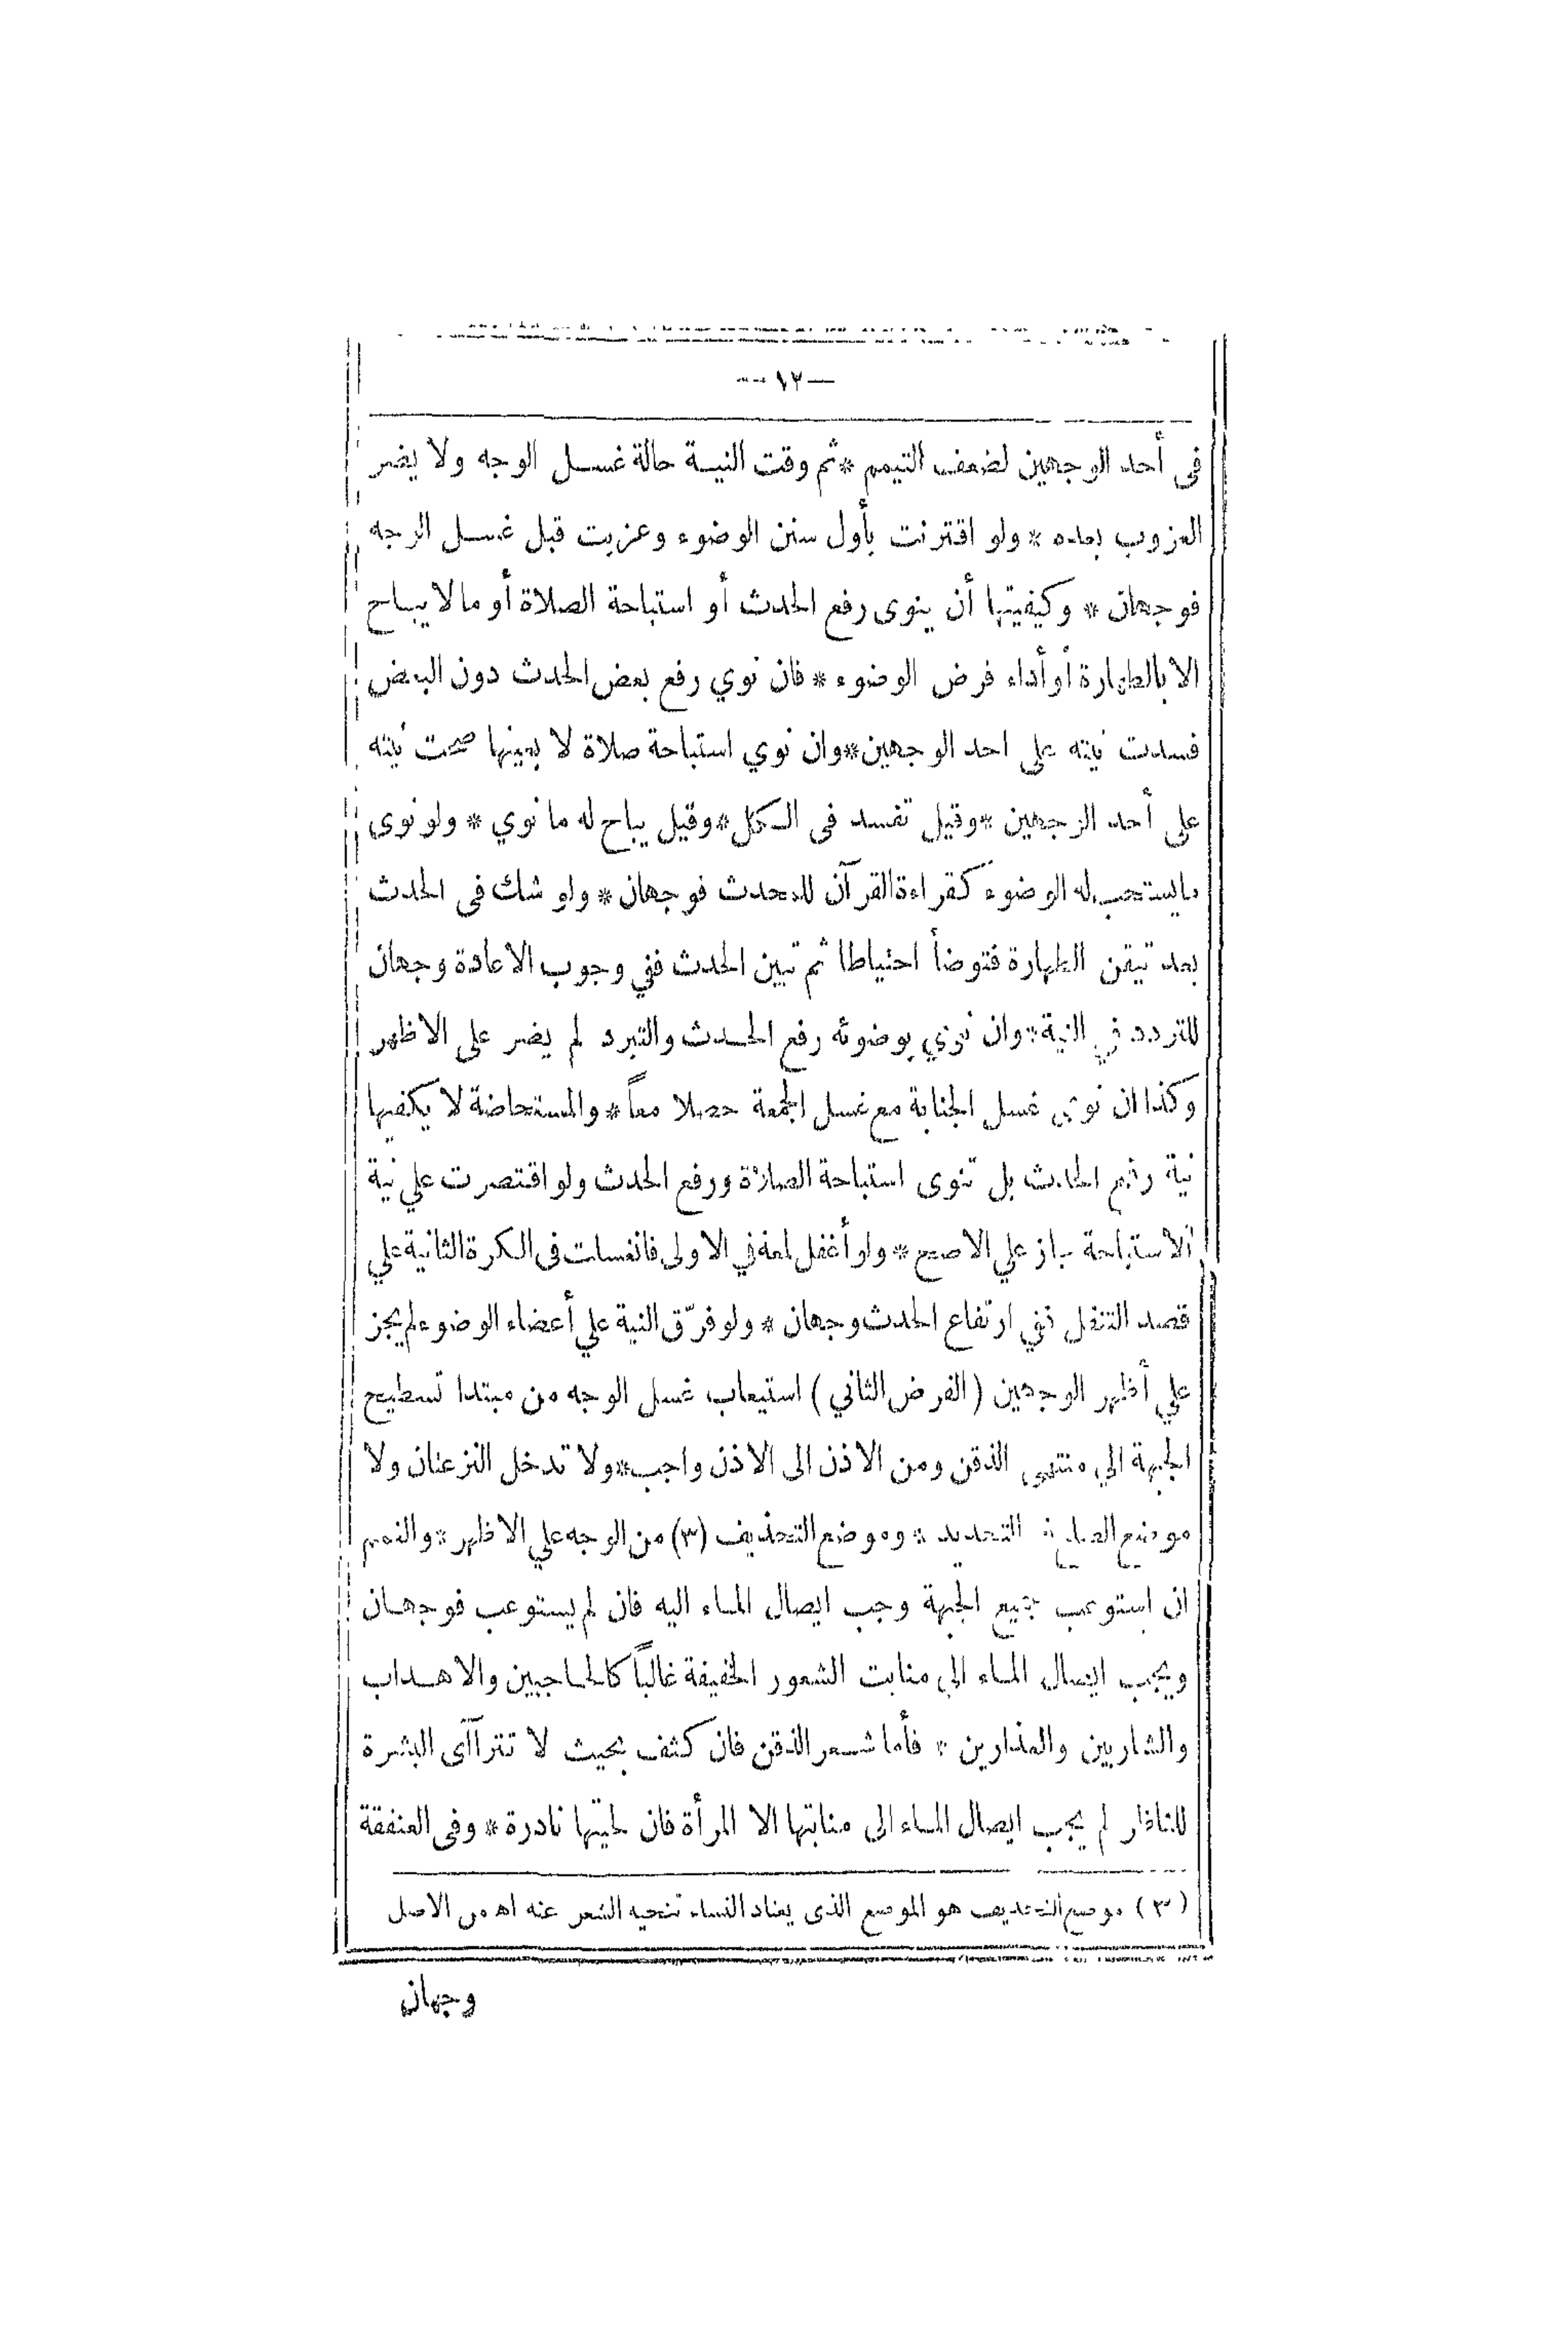 — ١٢ —
في أحد الوجهين لضعف التيمم * ثم وقت النية حالة غسل الوجه ولا يضر
العزوب بعده * ولو اقترنت بأول سنن الوضوء وعزبت قبل غسل الوجه
فوجهان * وكيفيتها أن ينوى رفع الحدث أو استباحة الصلاة أو مالا يباح
الا بالطهارة أو أداء فرض الوضوء * فان نوي رفع بعض الحدث دون البعض
فسدت نيته على احد الوجهين * وان نوي استباحة صلاة لا بعينها صحت نيته
على أحد الوجهين * وقيل تفسد فى الكل * وقيل يباح له ما نوي * ولو نوى
مايستحب له الوضوء كقراءة القرآن للمحدث فوجهان * ولو شك فى الحدث
بعد تيقن الطهارة فتوضأ احتياطا ثم تبين الحدث ففي وجوب الاعادة وجهان
للتردد في النية * وان نوي بوضوئه رفع الحدث والتبرد لم يضر على الاظهر
وكذا ان نوى غسل الجنابة مع غسل الجمعة حصلا معاً * والمستحاضة لا يكفيها
نية رفع الحدث بل تنوى استباحة الصلاة ورفع الحدث ولو اقتصرت علي نية
الاستباحة جاز علي الاصح * ولو أغفل لمعة في الاولى فانغسلت فى الكرة الثانية علي
قصد التنفل ففي ارتفاع الحدث وجهان * ولو فرّق النية علي أعضاء الوضوء لم يجز
علي أظهر الوجهين ( الفرض الثاني ) استيعاب غسل الوجه من مبتدا تسطيح
الجبهة الي منتهى الذقن ومن الاذن الى الاذن واجب * ولا تدخل النزعتان ولا
موضع الصلع في التحديد * وموضع التحذيف (٣) من الوجه علي الاظهر * والغمم
ان استوعب جميع الجبهة وجب ايصال الماء اليه فان لم يستوعب فوجهان
ويجب ايصال الماء الي منابت الشعور الخفيفة غالباً كالحاجبين والاهداب
والشاربين والعذارين * فأما شعر الذقن فان كثف بحيث لا تتراآى البشرة
للناظر لم يجب ايصال الماء الى منابتها الا المرأة فان لحيتها نادرة * وفى العنفقة
( ٣ ) موضع التحذيف هو الموضع الذى يعتاد النساء تنحيه الشعر عنه اه من الاصل
وجهان